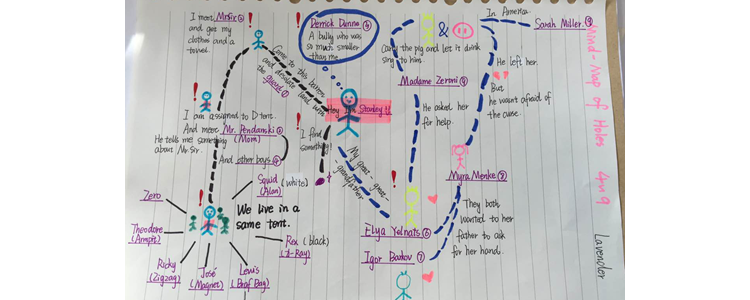 I meet Mr.Sir②
and get my
clothes and a
towel.
Derrick Dunne④
A bully who was
so much smaller
than me.
Came to this barren
and desolate land with
the guard①
&
In America
Sarah Miller⑨
Carry the pig and let it drink
sing to him.
Madame Zeroni⑧
He left her.
But
he wasn't afraid of
the curse.
He asked her
for help.
Stanley Y.
I find
something
My great-great-
grandfather
I am assigned to D tent.
And meet Mr. Pendanski③
He tells me something (Mom)
about Mr.Sir.
And other boys
Squid (white)
(Alan)
Zero
We live in a
same tent.
Theodore
(Armpit)
Rex (black)
(X-Ray)
Ricky
(Zigzag)
José
(Magnet)
Lewis
(Barf Bag)
Myra Menke⑦
They both
wanted to her
father to ask
for her hand.
Elya Yelnats⑥
Igor Barkov⑦
Mind-Map of Holes
Lavender